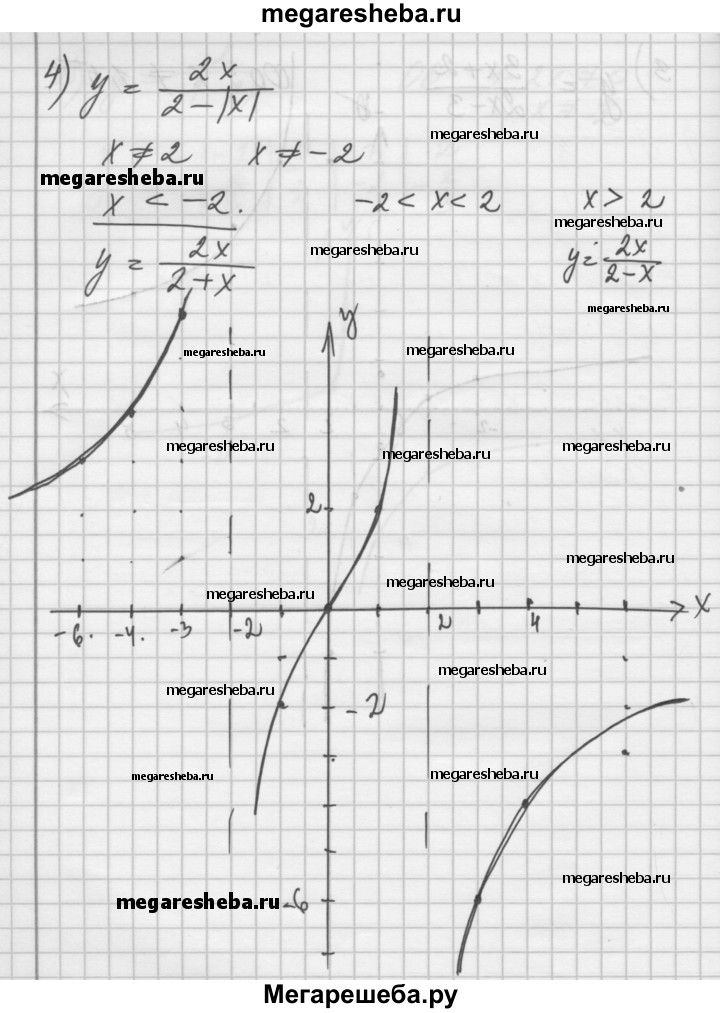 megaresheba.ru
4) y = 2x / 2-|x|
megaresheba.ru
x ≠ 2 x ≠ -2
megaresheba.ru
x < -2. -2 < x < 2 x > 2
megaresheba.ru
y = 2x / 2+x megaresheba.ru y = 2x / 2-x
megaresheba.ru
y
megaresheba.ru megaresheba.ru
megaresheba.ru megaresheba.ru megaresheba.ru
2
megaresheba.ru
megaresheba.ru megaresheba.ru
-6. -4. -3 -2 2 4 x
megaresheba.ru
megaresheba.ru -2
megaresheba.ru megaresheba.ru
megaresheba.ru
megaresheba.ru -6
Мегарешеба.ру